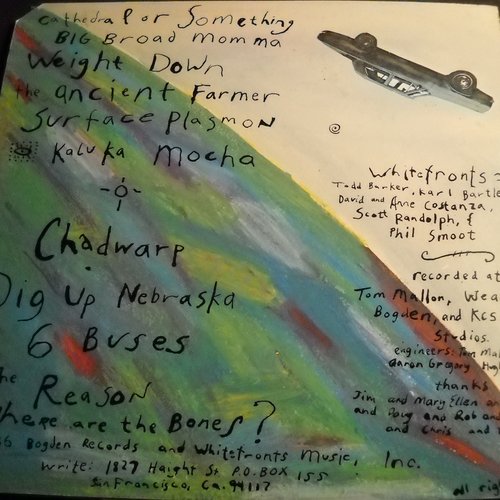 cathedral or Something
BIG Broad Momma
Weight Down
the ancient Farmer
Surface Plasmon
Kaluka Mocha
Chadwarp
Dig Up Nebraska
6 Buses
The Reason
Where are the Bones?
Bogden Records and Whitefronts Music, Inc.
Write: 1827 Haight St P.O. BOX 155
San Francisco, Ca. 94117
Whitefronts =
Todd Barker, Karl Bartle
David and Anne Costanza,
Scott Randolph, &
Phil Smoot
recorded at
Tom Mallon, Wea
Bogden, and Kcs
Studios.
engineers: Tom Ma
Aaron Gregory Hugh
thanks
Jim and Mary Ellen an
and Doug and Rob and
and Chris and
all rig